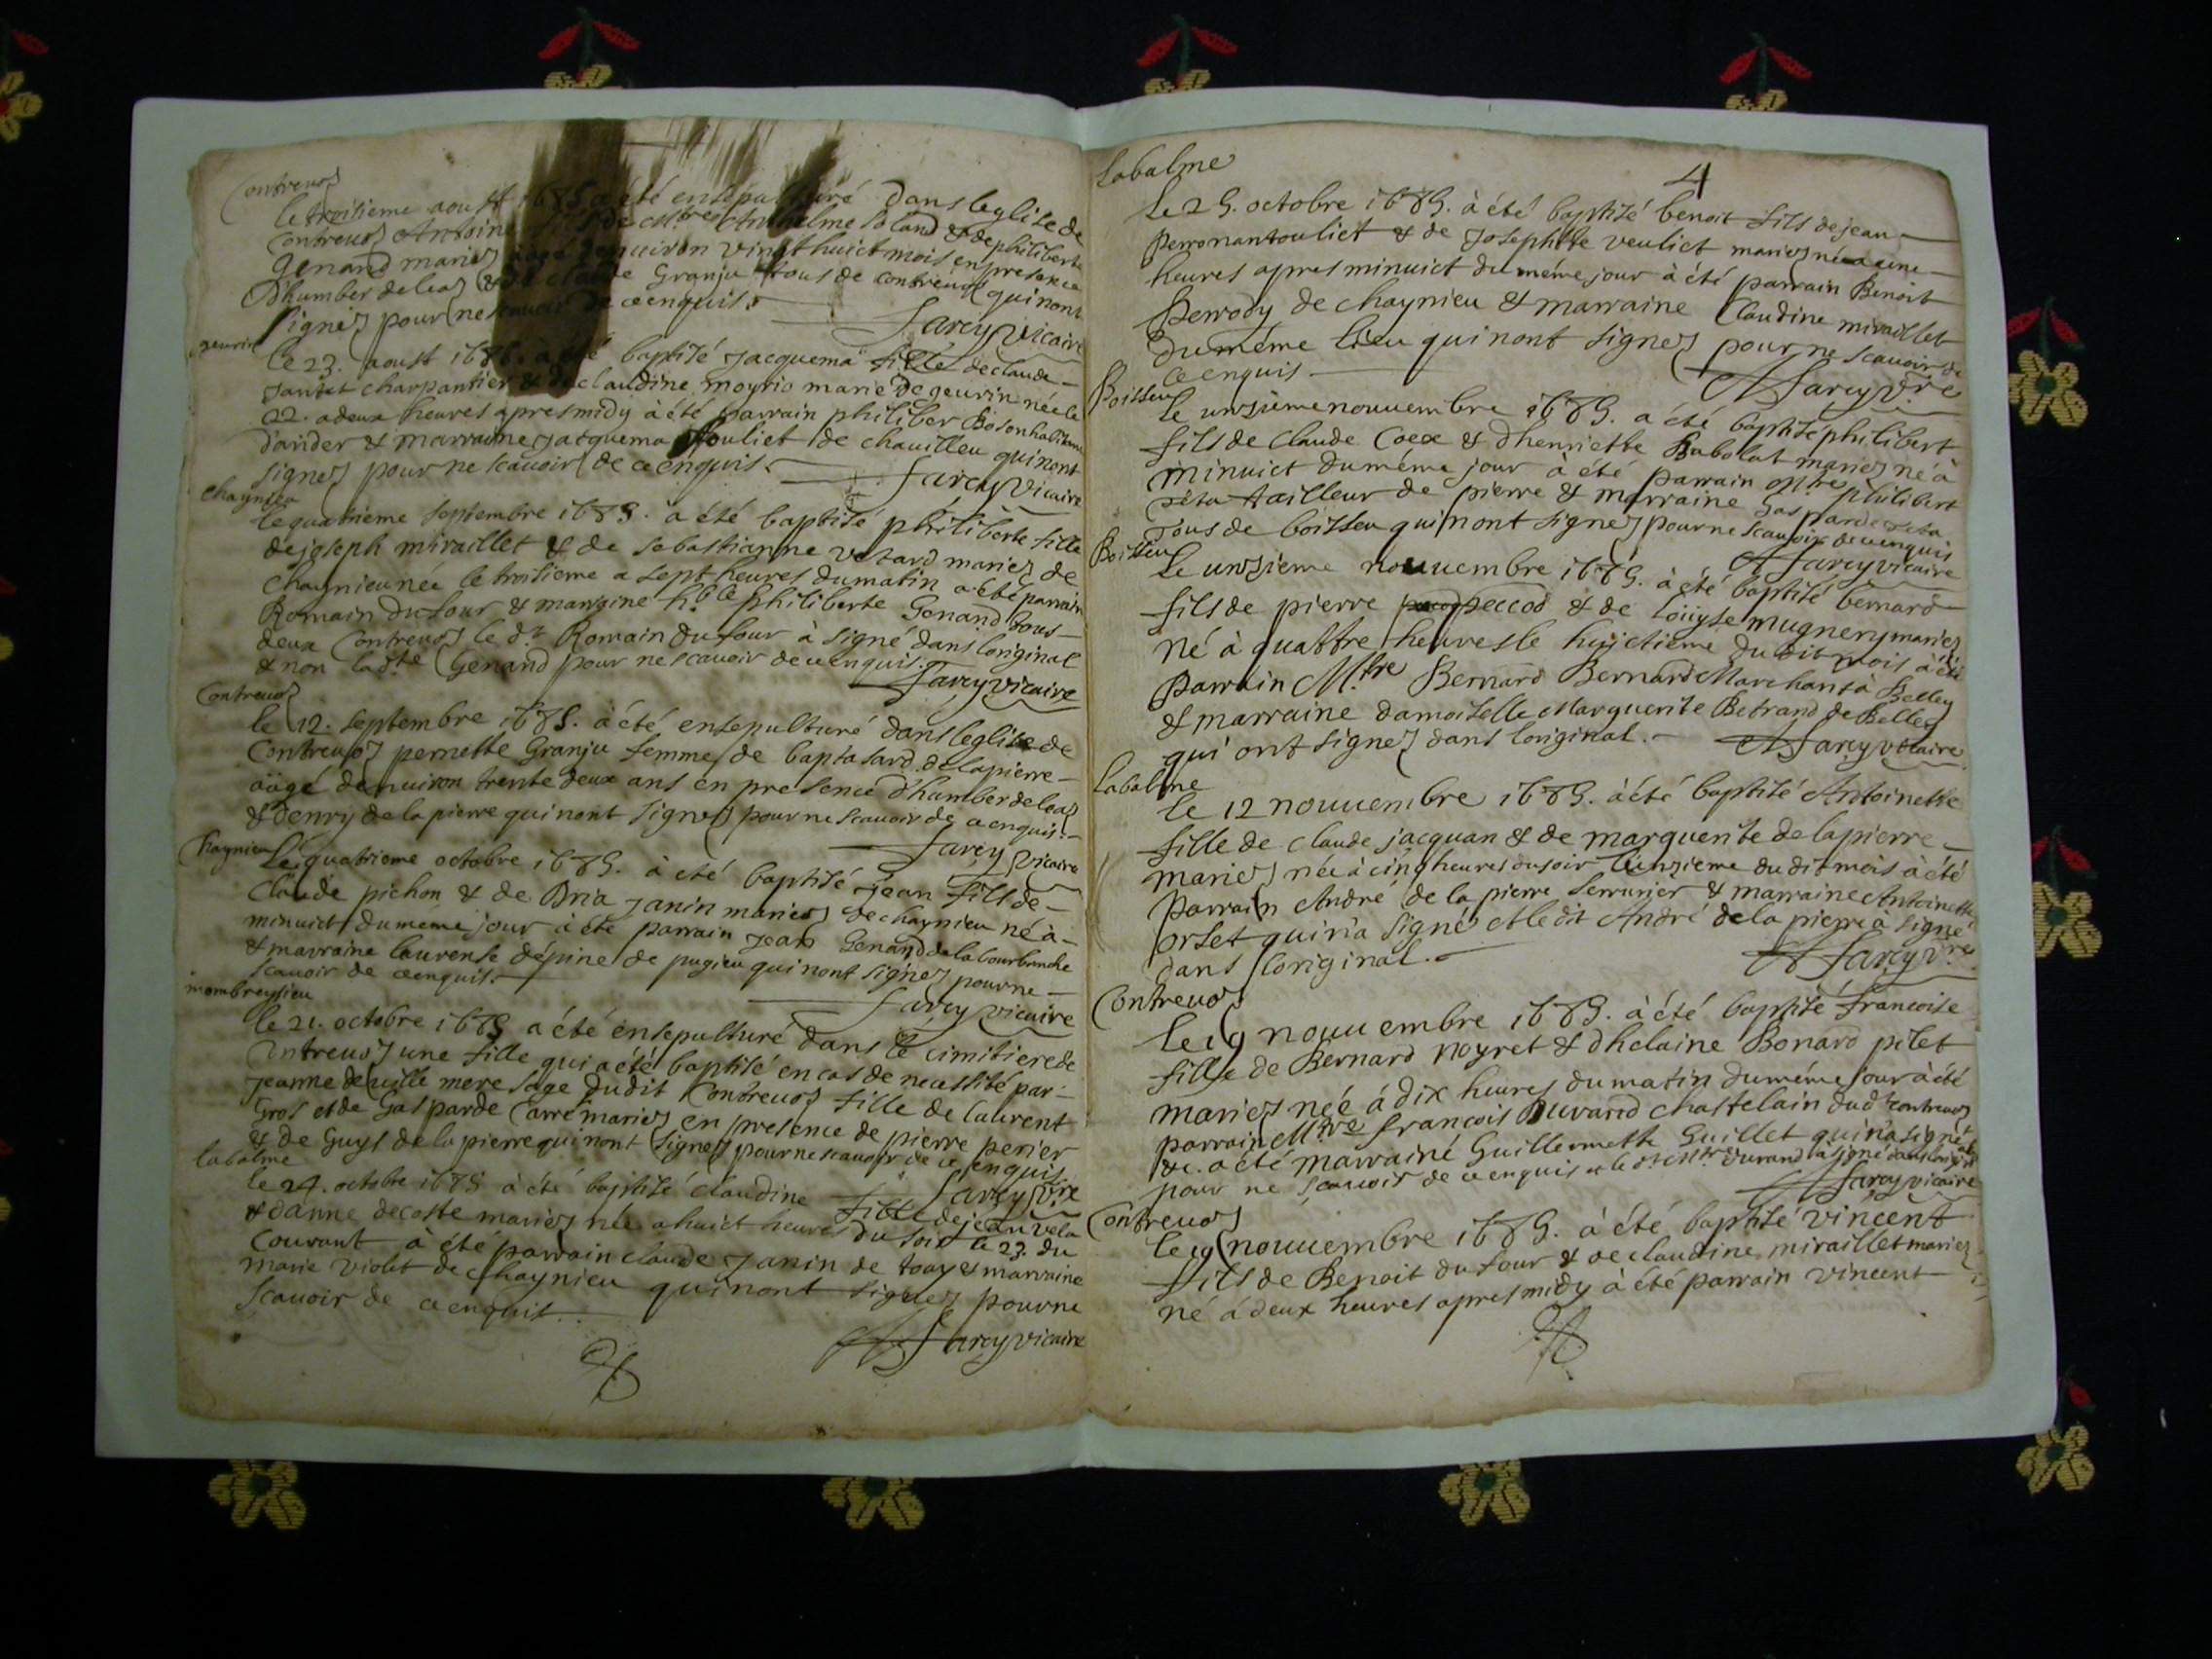 Contreuoz
le troisieme aoust 1685 a été ensepulturé dans leglise de
Contreuoz Antoine fils de Mtre Anthelme Soland & de philiberte
Genand mariez âagé denuiron vingt huict mois en presence
Dhumber deleaz & de claude Granju tous de contreuoz qui nont
signéz pour ne scauoir de ce enquis.
Sarcy vicaire
geurin
le 23. aoust 1685. à été baptisé jacquema fille de claude
Janiet charpantier & de claudine moyrio marié de geurin née le
22. a deux heures apres midy à été parrain philiber Boson habitant
dander & marraine jacquema touliet de chauilleu qui nont
signez pour ne scauoir de ce enquis.
Sarcy vicaire
Chaynieu
le quatrieme septembre 1685. a été baptisé philiberte fille
de joseph miraillet & de sebastianne vetard mariez de
Chaynieu née le troisieme a sept heures du matin a été parrain
Romain dufour & marraine h.ble philiberte Genand tous
deux Contreuoz le d.t Romain dufour à signé dans loriginal
& non lad.te Genand pour ne scauoir de ce enquis.
Sarcy vicaire
Contreuoz
le 12. septembre 1685. à été ensepulturé dans leglise de
Contreuoz pernette Granju femme de baptasard delapierre
aâgé denuiron trente deux ans en presence dhumber deleaz
& denry de la pierre qui nont signez pour ne scauoir de ce enquis.
Sarcy vicaire
Chaynieu
Le quatrieme octobre 1685. à été baptisé jean fils de
Claude pichon & de Dria janin mariez de chaynieu né à
minuict du meme jour à été parrain jean Genand de la bourbanche
& marraine laurense dépine de pugieu qui nont signez pour ne
scauoir de ce enquis.
Sarcy vicaire
mombreysieu
le 21. octobre 1685 a été ensepulturé dans le cimitiere de
Contreuoz une fille qui a été baptisé en cas de necessité par
jeanne deville mere sage dudit Contreuoz fille de laurent
Gros et de Gasparde Carré mariez en presence de pierre perier
& de Guys de la pierre qui nont signez pour ne scauoir de ce enquis
Sarcy v.re
labalme
le 24. octobre 1685 à été baptisé claudine fille de jean vela
& danne decoste mariez née a huict heures du soir le 23. du
Courant à été parrain claude janin de toay & marraine
marie violet de Chaynieu qui nont signez pour ne
scauoir de ce enquis.
Sarcy vicaire
Labalme
4
Le 25. octobre 1685. à été baptisé benoit fils de jean
Perronantouliet & de josephte veuliet mariez né a une
heures apres minuict du méme jour à été parrain Benoit
Perrody de Chaynieu & marraine Claudine miraillet
du méme lieu qui nont signez pour ne scauoir de
ce enquis.
Sarcy v.re
Boissieu
le unzieme nouuembre 1685. a été baptisé philibert
fils de Claude Coex & dhenriette Babolat mariez né à
minuict du méme jour à été parrain M.tre philibert
tailleur de pierre & marraine Gasparde
tous de boissieu qui nont signez pour ne scauoir de ce enquis
Sarcy vicaire
Boissieu
le unzieme nouuembre 1685. à été baptisé bernard
fils de pierre peccod & de loüyse mugnery mariez
né à quattre heures le huictieme dudit mois à été
Parrain M.tre Bernard Bernard Marchant à Belley
& marraine damoiselle Marguerite Betrand de Belley
qui ont signez dans loriginal.
Sarcy vicaire
Labalme
le 12 nouuembre 1685. à été baptisé Antoinette
fille de claude jacquan & de marguerite de lapierre
mariez née à cinq heures du soir lunzieme du dit mois à été
Parrain André de la pierre serrurier & marraine Antoinette
orset qui n'a signé et le dit André de la pierre à signé
dans loriginal.
Sarcy v.re
Contreuoz
le 19 nouuembre 1685. à été baptisé francoise
fille de Bernard noyret & dhelaine Bonard pilet
mariez née à dix heures du matin du méme jour à été
parrain M.tre francois Durand chastelain dud.t contreuoz
&c. a été marrainé Guillermette Guillet qui n'a signé
pour ne scauoir de ce enquis et le d.t M.tre durand a signé dans
Sarcy vicaire
Contreuoz
le 19 nouuembre 1685. à été baptisé vincent
fils de Benoit dufour & de claudine miraillet mariez
né à deux heures apres midy à été parrain vincent